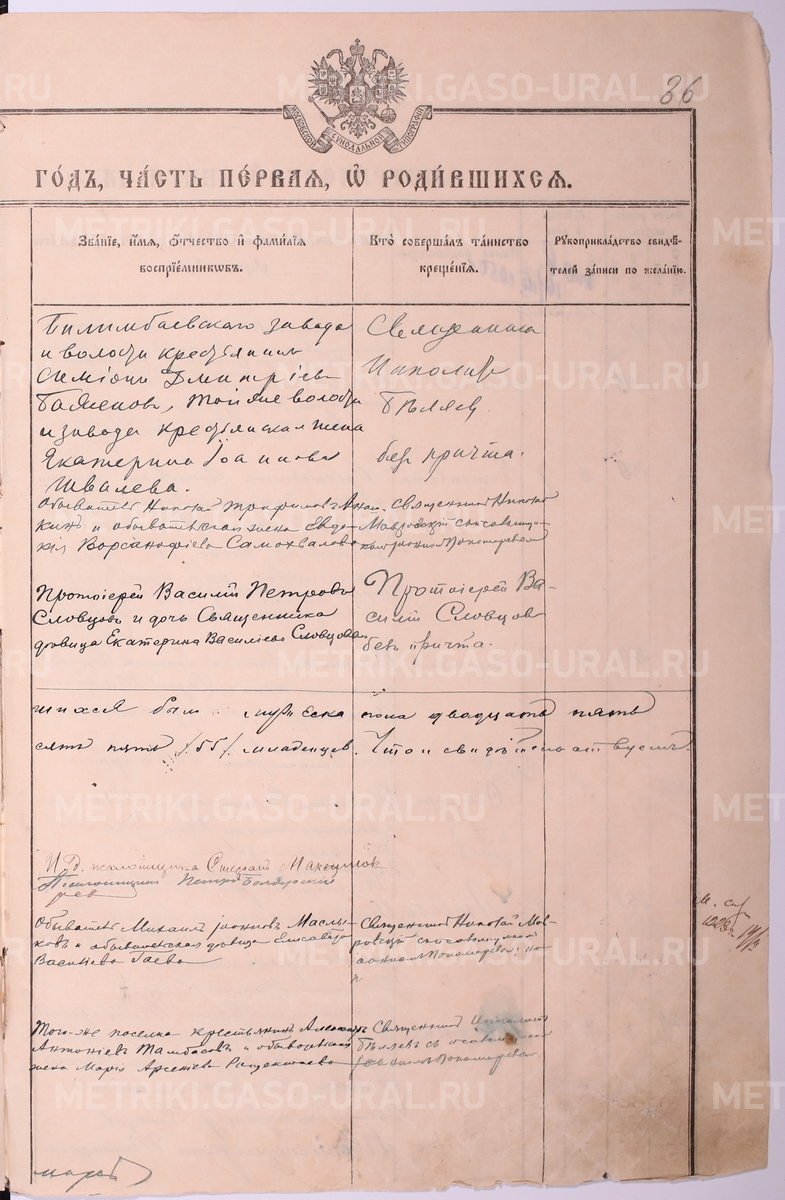 METRIKI.GASO-URAL.RU
36
МОСКОВСКОЙ СѴНОДАЛЬНОЙ ТИПОГРАФІИ
ГО́ДЪ, ЧА́СТЬ ПЕ́РВАЯ, Ѡ҆ РОДИ́ВШИХСЯ.
Зва́нїе, и҆́мѧ, ѻ҆́тчество и҆ фами́лїѧ
воспрїе́мникѡвъ.
Кто̀ соверша́лъ та́инство
креще́нїѧ.
Рꙋкоприкла́дство свидѣ́-
телей за́писи по жела́нїю.
Билимбаевскаго завода
и волости крестьянинъ
Симеонъ Дмитріевъ
Баженовъ, той же волости
и завода крестьянская жена
Екатерина Іоаннова
Швалева.
Священникъ
Ипполитъ
Бѣляевъ
безъ причта.
Обыватель Николай Трофимовъ
кинъ и обывательская жена Евдо-
кія Ворсанофіева Самохвалова
Священникъ Николай
Мавровскій съ псаломщи-
комъ Пономаревымъ
Протоіерей Василій Петровъ
Словцовъ и дочь Священника
дѣвица Екатерина Васильева Словцова
Протоіерей Ва-
силій Словцовъ
безъ причта.
шихся было мужеска пола двадцать пять
сятъ пять /55/ младенцевъ. Что и свидѣтельствуемъ.
И. д. псаломщика Максимовъ
Псаломщикъ Петръ
Обыватель Михаилъ Іоанновъ Маслы-
ковъ и обывательская дѣвица Елисавета
Васильева Гаева
Священникъ Николай Мав-
ровскій съ псаломщикомъ
Пономаревымъ
Того-же поселка крестьянинъ
Антоніевъ Тамбасовъ и обывательская
жена Марія Арсеніева
Священникъ Ипполитъ
Бѣляевъ съ псаломщикомъ
Пономаревымъ
мартъ